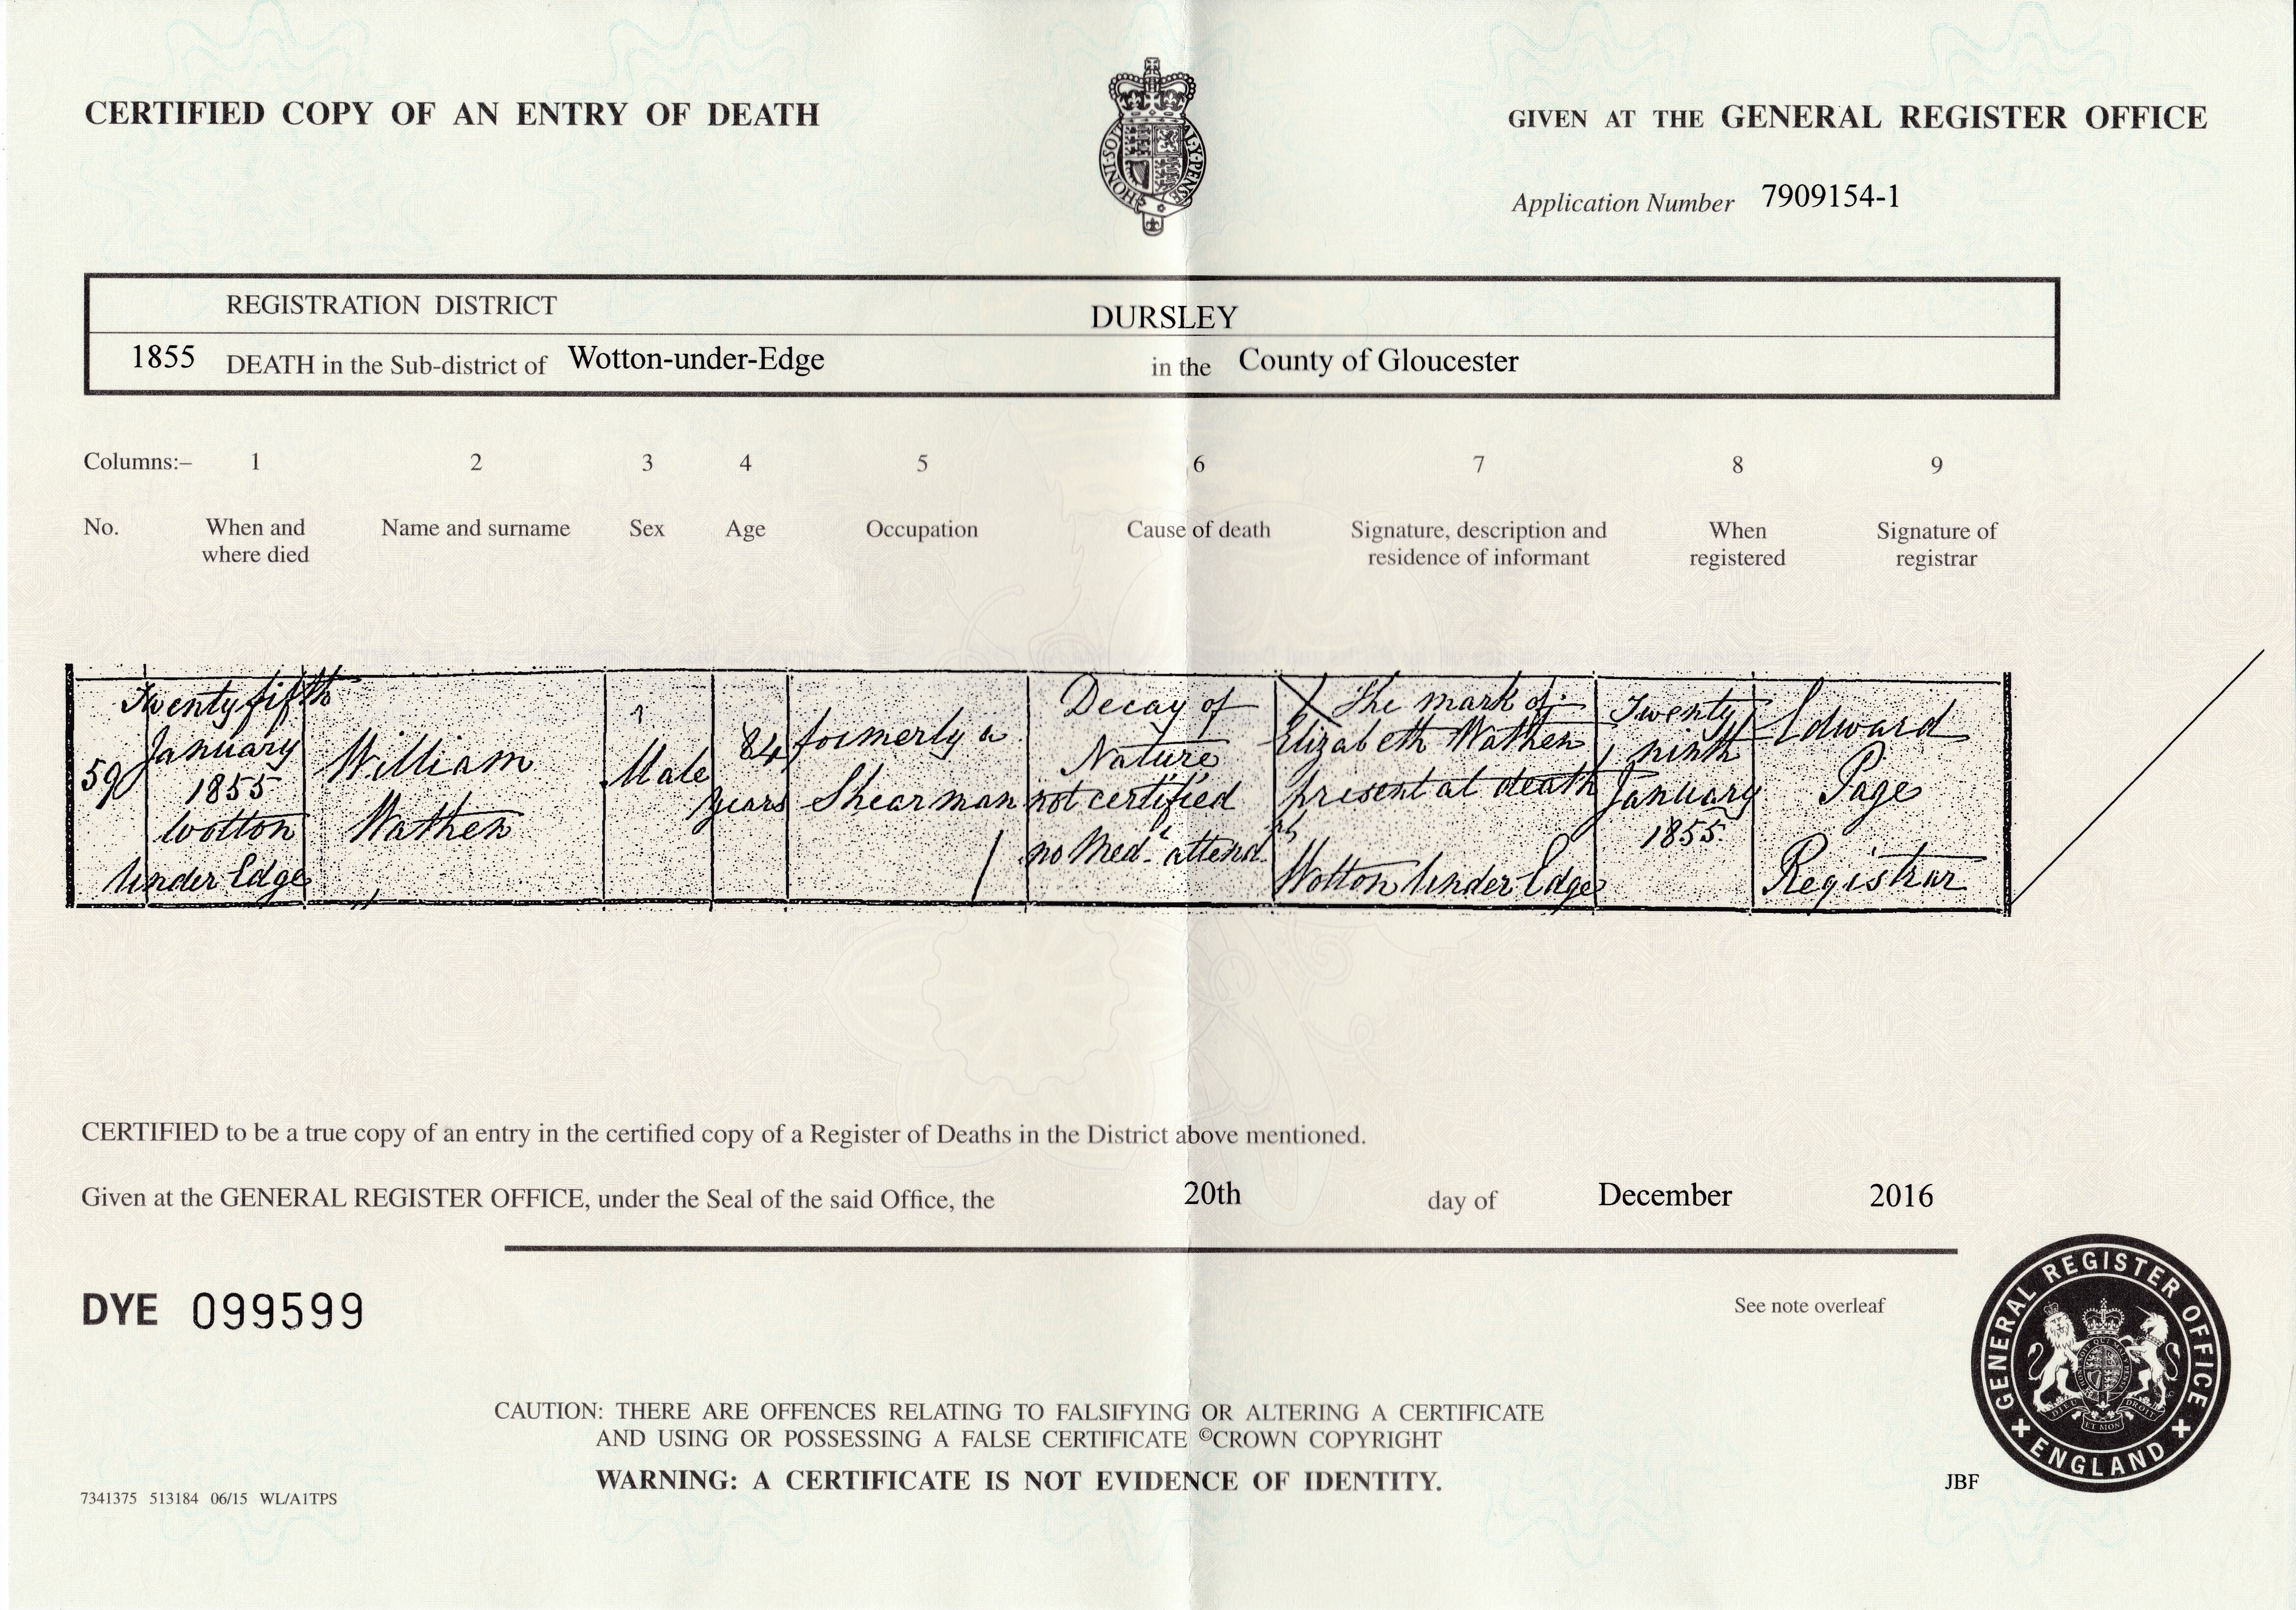 CERTIFIED COPY OF AN ENTRY OF DEATH
GIVEN AT THE GENERAL REGISTER OFFICE
HONI·SOI
AL·Y·PENSE
Application Number 7909154-1
REGISTRATION DISTRICT DURSLEY
1855 DEATH in the Sub-district of Wotton-under-Edge in the County of Gloucester
Columns:– 1 2 3 4 5 6 7 8 9
No. When and where died Name and surname Sex Age Occupation Cause of death Signature, description and residence of informant When registered Signature of registrar
59
Twenty fifth
January
1855
Wotton
Under Edge
William
Wathen
Male
84
years
formerly a
Shearman
Decay of
Nature
not certified
no Med attend
X The mark of
Elizabeth Wathen
present at death
Wotton Under Edge
Twenty
ninth
January
1855
Edward
Page
Registrar
CERTIFIED to be a true copy of an entry in the certified copy of a Register of Deaths in the District above mentioned.
Given at the GENERAL REGISTER OFFICE, under the Seal of the said Office, the 20th day of December 2016
DYE 099599
See note overleaf
GENERAL REGISTER OFFICE
ENGLAND
DIEU ET MON DROIT
CAUTION: THERE ARE OFFENCES RELATING TO FALSIFYING OR ALTERING A CERTIFICATE
AND USING OR POSSESSING A FALSE CERTIFICATE ©CROWN COPYRIGHT
WARNING: A CERTIFICATE IS NOT EVIDENCE OF IDENTITY.
JBF
7341375 513184 06/15 WL/A1TPS